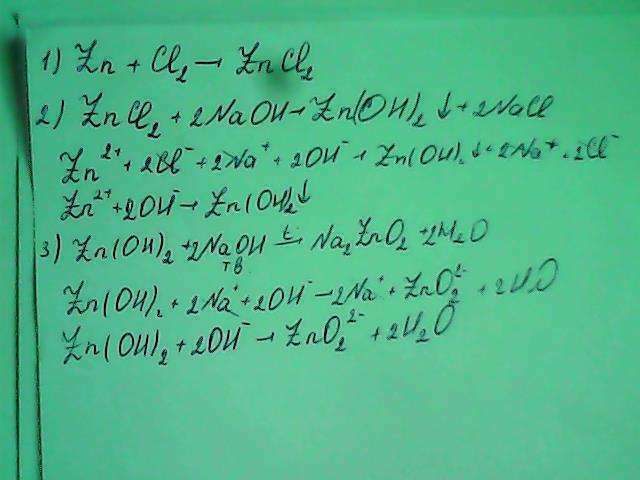 1) Zn + Cl₂ → ZnCl₂
2) ZnCl₂ + 2NaOH → Zn(OH)₂↓ + 2NaCl
Zn²⁺ + 2Cl⁻ + 2Na⁺ + 2OH⁻ → Zn(OH)₂↓ + 2Na⁺ + 2Cl⁻
Zn²⁺ + 2OH⁻ → Zn(OH)₂↓
3) Zn(OH)₂ + 2NaOH t→ Na₂ZnO₂ + 2H₂O
тв
Zn(OH)₂ + 2Na⁺ + 2OH⁻ → 2Na⁺ + ZnO₂²⁻ + 2H₂O
Zn(OH)₂ + 2OH⁻ → ZnO₂²⁻ + 2H₂O